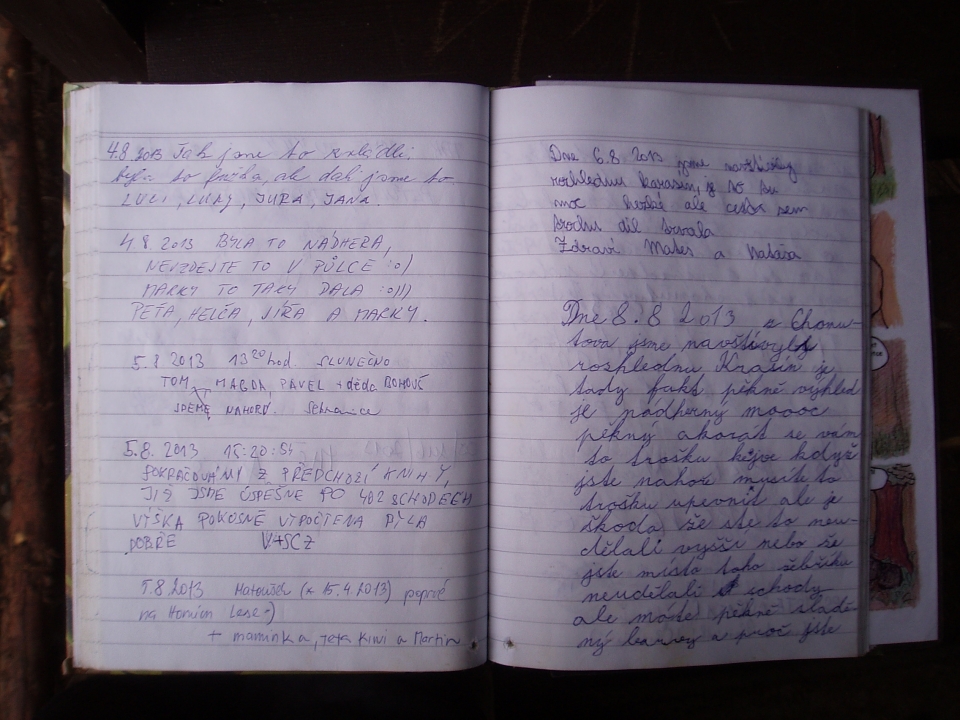 4.8.2013 Tak jsme to zvládli.
byla to fuška, ale dali jsme to.
LUCI, LUKY, JURA, JANA.
4 8. 2013 BYLA TO NÁDHERA,
NEVZDEJTE TO V PŮLCE :o)
MARKY TO TAKY DALA :o)))
PEŤA, HELČA, JÍŘA A MARKY.
5.8 2013 13 20 hod. SLUNEČNO
TOM, MAGDA, PAVEL + děda BOHOUŠ
JDEME NAHORU.
5.8. 2013 15:20:54
POKRAČOVÁNÍ Z PŘEDCHOZÍ KNIHY,
JIŽ JSME ÚSPEŠNE PO 402 SCHODECH
VÝŠKA POKUSNĚ VÝPOČTENA BYLA
DOBŘE V+SCZ
5.8.2013 Matoušek (* 15.4.2013) poprvé
na Horním Lese :)
+ maminka, teta Kiwi a Martin
Dne 6.8 2013 jsme navštívily
rozhlednu je to tu
moc hezké ale cesta sem
trochu díl trvala
Zdraví a Nataša
Dne 8.8 2013 z Chomu-
tova jsme navštívyly
rozhlednu Krašín je
tady fakt pěkně výhled
je nádherný moooc
pěkný akorát se vám
to trošku kejve když
jste nahoře musíte to
trošku upevnit ale je
škoda že ste to neu-
dělali vyšší nebo že
jste místo toho žebříku
neudělali schody
ale máte pěkně sladě-
ný barvy a proč jste